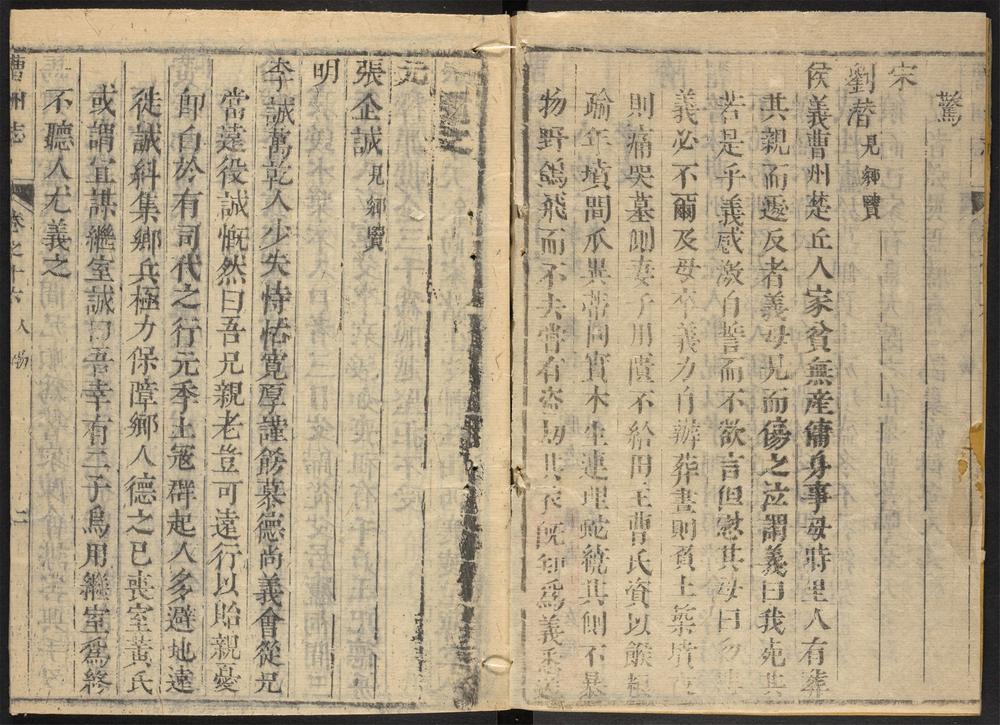 驚
宋
劉潛見鄉賢
侯義曹州楚丘人家貧無產傭身事母時里人有葬
其親而遽反者義母見而傷之泣謂義曰我死其
若是乎義感激自誓而不欲言但慰其母曰勿
義必不爾及母卒義力自辦葬晝則負土築墳
則痛哭墓側妻子用匱不給田主曹氏資以餱糧
踰年墳間瓜異蔕同實木生連理蛇繞其側不暴
物野鴿飛而不去嘗有盜刼其衣旣知爲義
元
張企誠見鄉賢
明
李誠萬乾人少失恃怙寬厚謹飭慕德尚義會從兄
當遠役誠慨然曰吾兄親老豈可遠行以貽親憂
卽白於有司代之行元季土冦群起人多避地遠
徙誠糾集鄉兵極力保障鄉人德之已喪室黃氏
或謂宜謀繼室誠曰吾幸有二子烏用繼室爲終
不聽人尤義之
曹州志
卷之十六
人物
二